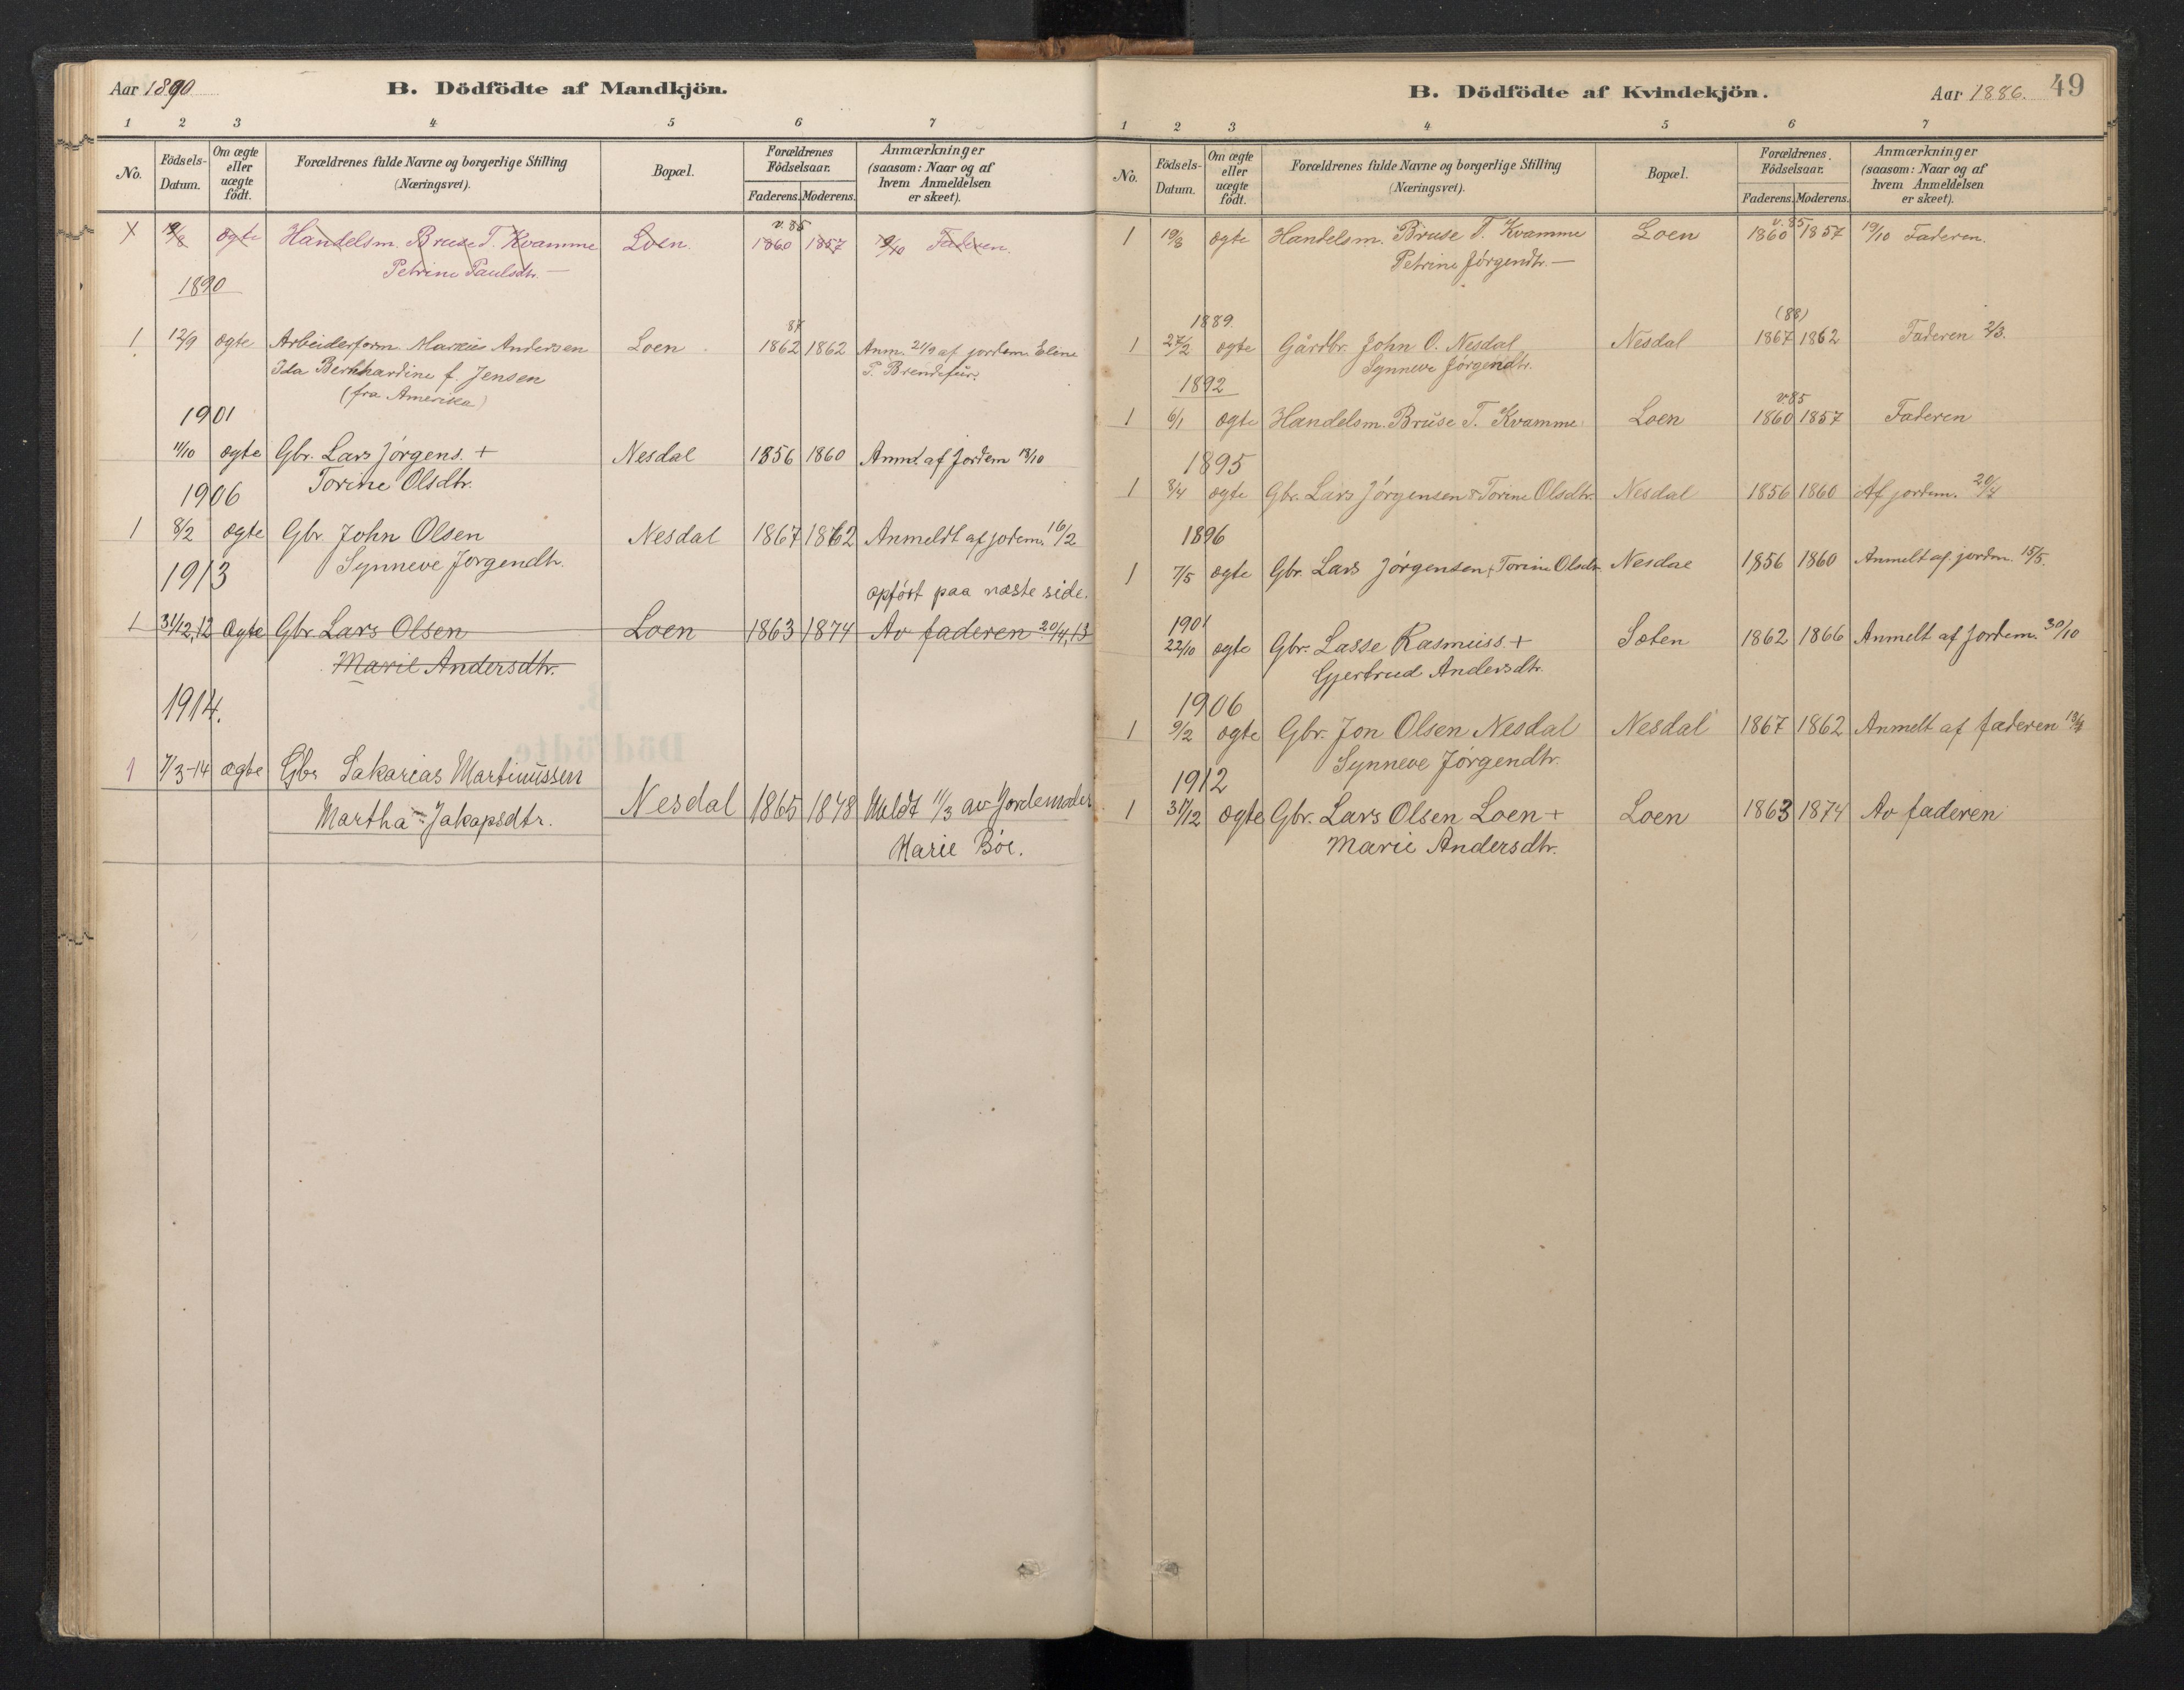 Aar 1890
B. Dödfödte af Mandkjön.
1 2 3 4 5 6 7
No. Födsels-Datum. Om ægte eller uægte födt. Forældrenes fulde Navne og borgerlige Stilling (Næringsvei). Bopæl. Forældrenes Födselsaar. Faderens. Moderens. Anmærkninger (saasom: Naar og af hvem Anmeldelsen er skeet).
v. 85
19/8 ægte Handelsm. Bruse T. Kvamme Loen. 1860 1857 19/10 Faderen.
Petrine Paulsdtr. —
1890
87
1 12/9 ægte Arbeiderform. Marius Andersen Loen 1862 1862 Anm. 21/9 af jordem. Eline
Ida Bernhardine f. Jensen P.
(fra Amerika)
1901
11/10 ægte Gbr. Lars Jørgens. + Nesdal 1856 1860 Anm. af Jordem 13/10
Torine Olsdtr.
1906
1 8/2 ægte Gbr. John Olsen Nesdal 1867 1862 Anmeldt af jordem. 16/2
Synneve Jørgendtr.
1913
opført paa næste side.
1 31/12,12 ægte Gbr Lars Olsen Loen 1863 1874 Av faderen 20/4,13
Marie Andersdtr.
1914.
1 7/3-14 ægte Gbr Sakarias Martinussen
Martha Jakapsdtr. Nesdal 1865 1878 Meldt 11/3 av Jordemoder
Marie Böe.
B. Dödfödte af Kvindekjön.
Aar 1886.
49
1 2 3 4 5 6 7
No. Födsels-Datum. Om ægte eller uægte födt. Forældrenes fulde Navne og borgerlige Stilling (Næringsvei). Bopæl. Forældrenes Födselsaar. Faderens. Moderens. Anmærkninger (saasom: Naar og af hvem Anmeldelsen er skeet).
v. 85
1 19/8 ægte Handelsm. Bruse T. Kvamme Loen 1860 1857 19/10 Faderen.
Petrine Jørgendtr. —
1889.
(88)
1 27/2 ægte Gårdbr. John O. Nesdal Nesdal 1867 1862 Faderen 2/3.
Synneve Jørgendtr.
1892
v. 85
1 6/1 ægte Handelsm. Bruse T. Kvamme Loen 1860 1857 Faderen
1895
1 8/4 ægte Gbr. Lars Jørgensen & Torine Olsdtr. Nesdal 1856 1860 Af jordem. 20/4
1896
1 7/5 ægte Gbr. Lars Jørgensen, Torine Olsdtr. Nesdal 1856 1860 Anmelt af jordm. 15/5.
1901
22/10 ægte Gbr. Lasse Rasmuss. + Sæten 1862 1866 Anmelt af Jordem. 30/10
Gjertrud Andersdtr.
1906
1 9/2 ægte Gbr. Jon Olsen Nesdal Nesdal 1867 1862 Anmelt af faderen
Synneve Jørgendtr.
1912
1 31/12 ægte Gbr. Lars Olsen Loen + Loen 1863 1874 Av faderen
Marie Andersdtr.